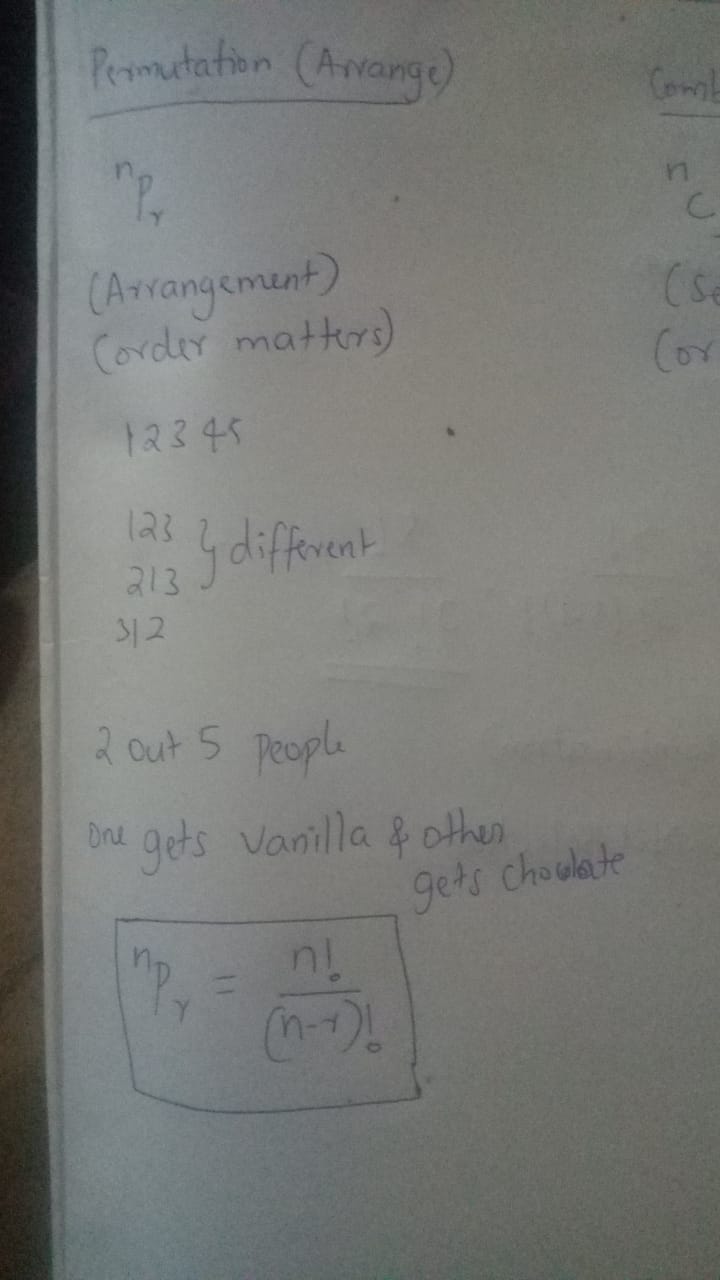 Permutation (Arrange)
ⁿPᵣ
(Arrangement)
(order matters)
12345
123 } different
213
312
2 out 5 people
one gets vanilla & other
gets chocolate
ⁿPᵣ = n! / (n-r)!
n
C